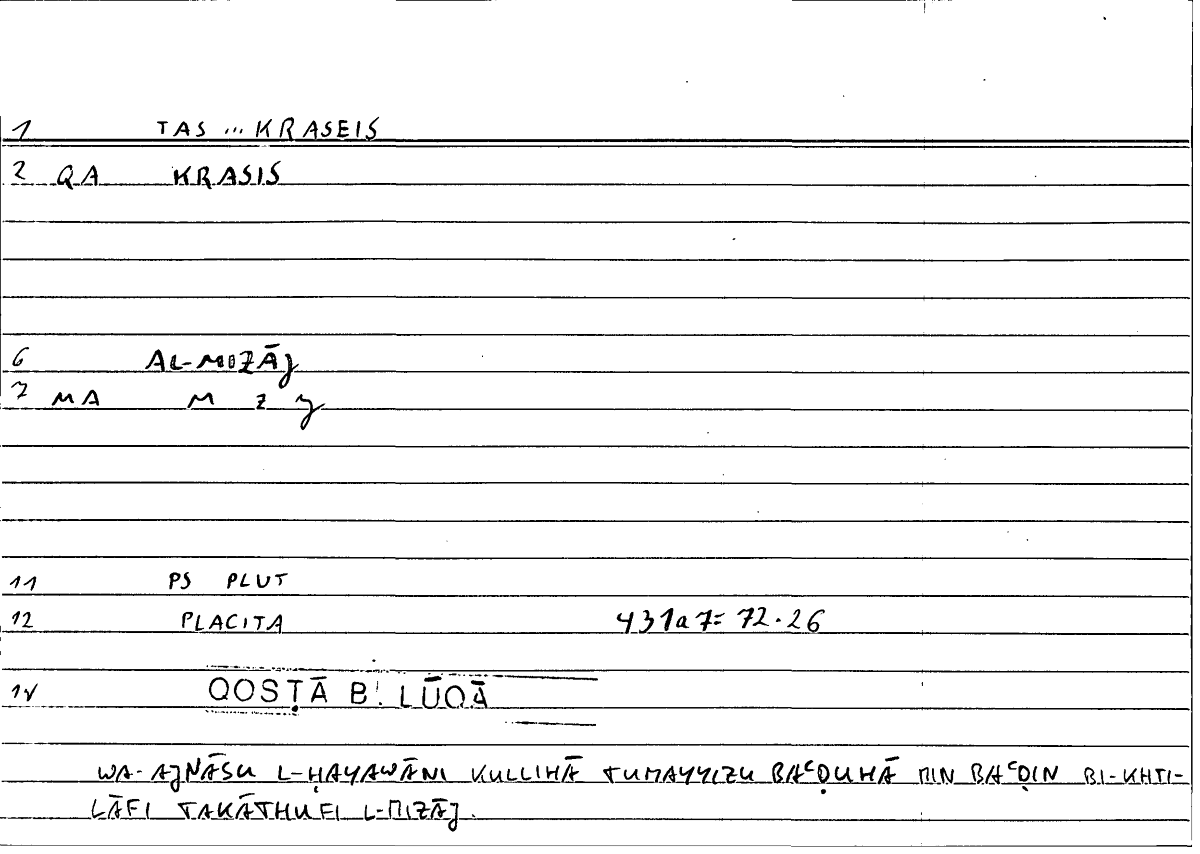 1 TAS ... KRASEIS
2 QA KRASIS
6 AL-MIZĀJ
7 MA M Z J
11 PS PLUT
12 PLACITA 431a7= 72.26
14 QOSṬĀ B. LŪQĀ
WA-AJNĀSU L-ḤAYAWĀNI KULLIHĀ TUMAYYIZU BAʿḌUHĀ MIN BAʿḌIN BI-KHTI-
LĀFI TAKĀTHUFI L-MIZĀJ.